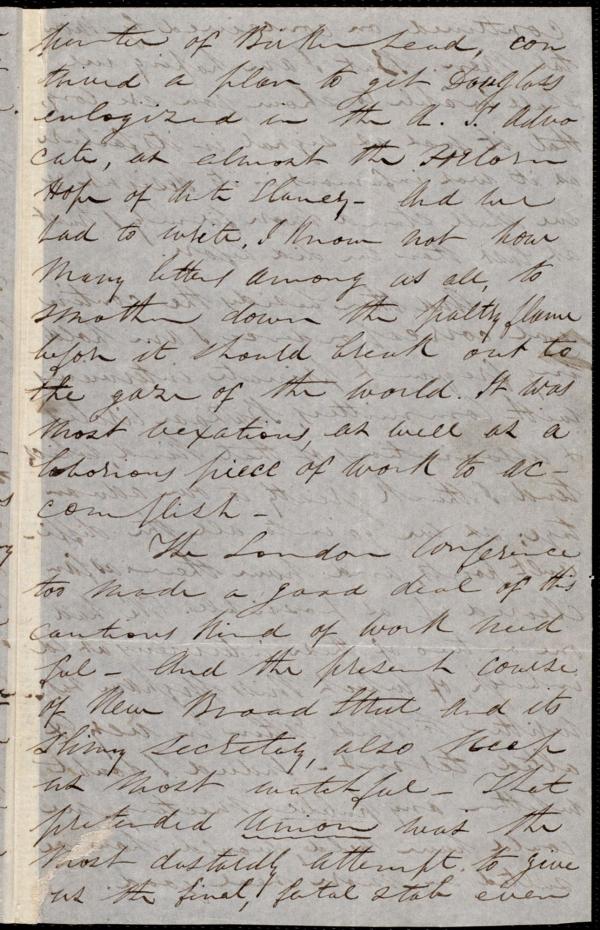 hunter of Birkenhead, con
trived a plan to get Douglass
eulogized in the A. S. Advo
cate, as almost the Forlorn
Hope of Anti Slavery - And we
had to write, I know not how
many letters among us all, to
smother down the paltry flame
before it should break out to
the gaze of the world. It was
most vexatious, as well as a
laborious piece of work to ac-
complish -
The London Conference
too made a good deal of this
cautious kind of work need
ful - And the present course
of New Broad Street and its
slimy Secretary, also keep
us most watchful - That
pretended Union was the
most dastardly attempt to give
us the final, fatal stab even